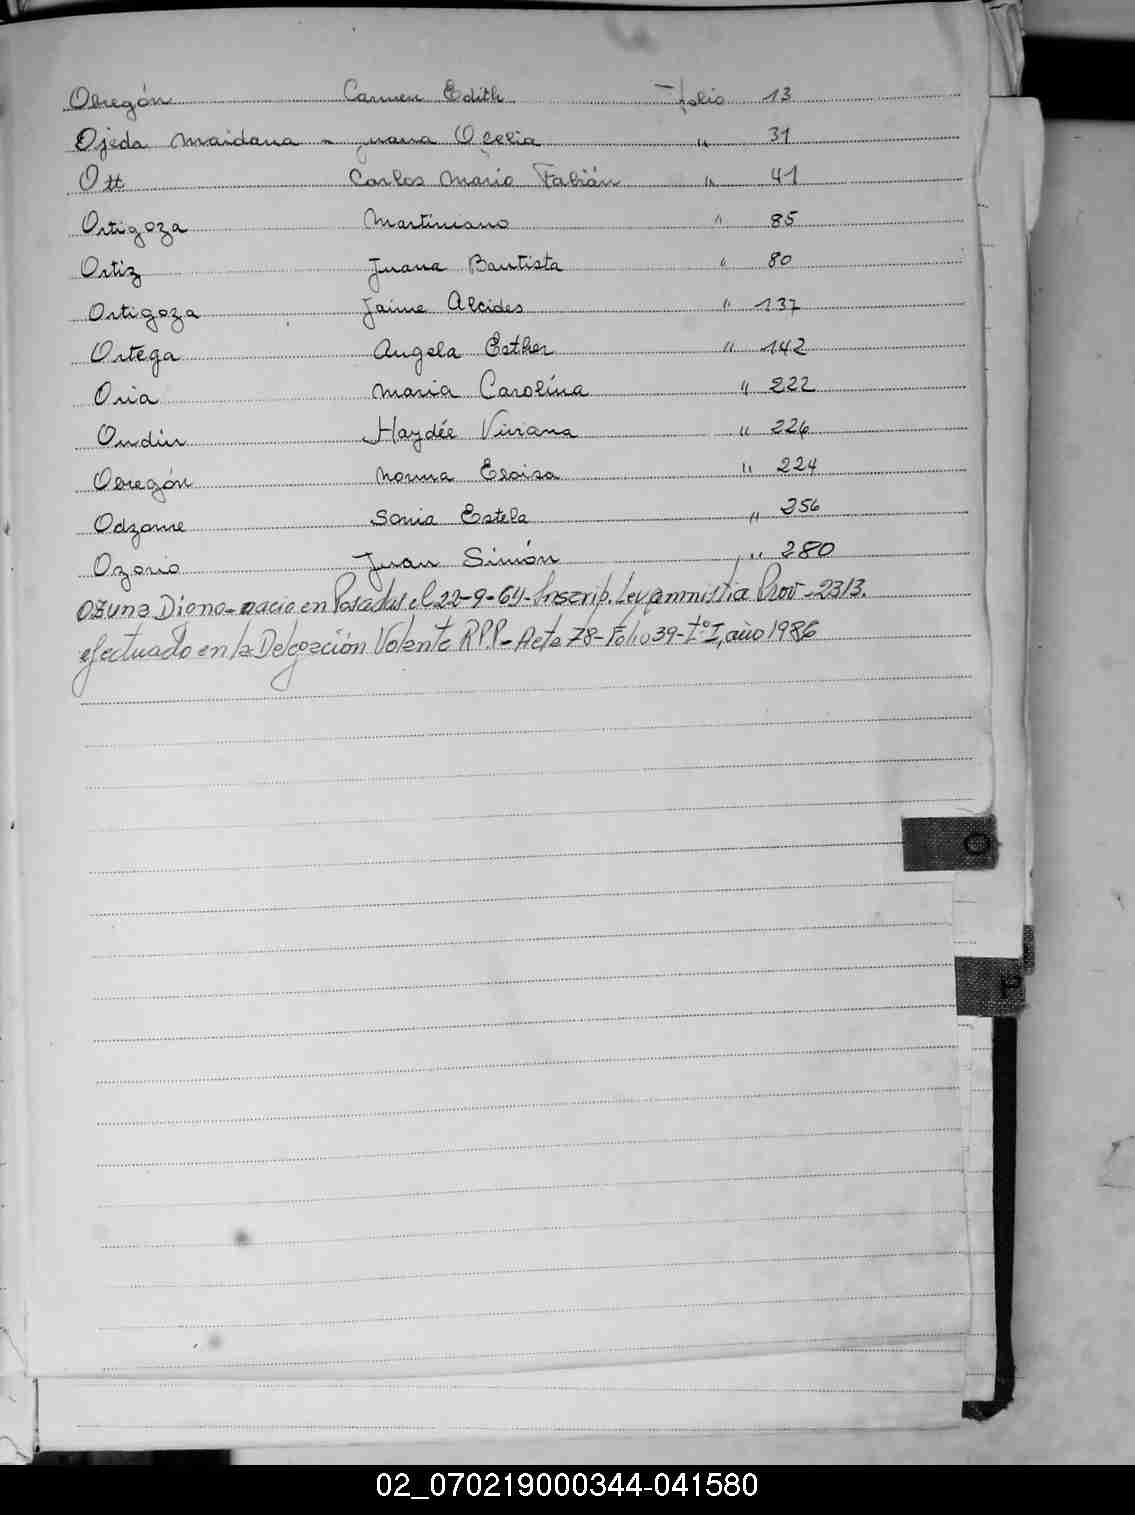 Obregón Carmen Edith Folio 13
Ojeda Maidana - Juana Ocelia " 31
Ott Carlos Mario Fabián " 41
Ortigoza Martiniano " 85
Ortiz Juana Bautista " 80
Ortigoza Jaime Alcides " 137
Ortega Angela Esther " 142
Oria Maria Carolina " 222
Ondin Haydée Viviana " 226
Obregón Norma Eloisa " 224
Odzome Sonia Estela " 256
Ozorio Juan Simón " 280
Ozuna Diono- nacio en Posadas el 22-9-64- Inscrip. Ley amnistia Prov - 2313.
efectuado en la Delegación Volante R.P.P - Acta 78 - Folio 39 - Tº I, año 1986
O
P
02_070219000344-041580